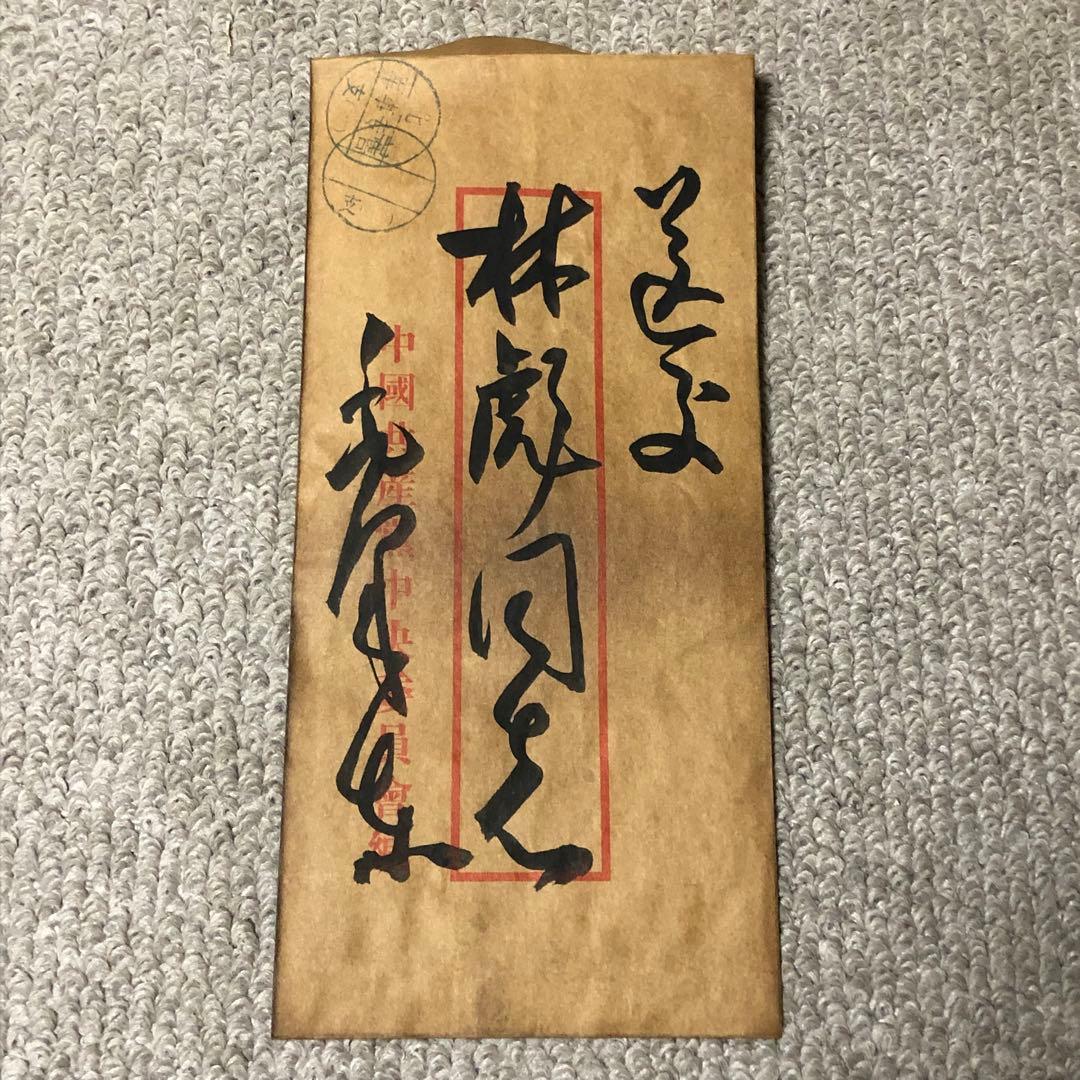 送交
林彪同志
毛泽东
中國共產黨中央委員會